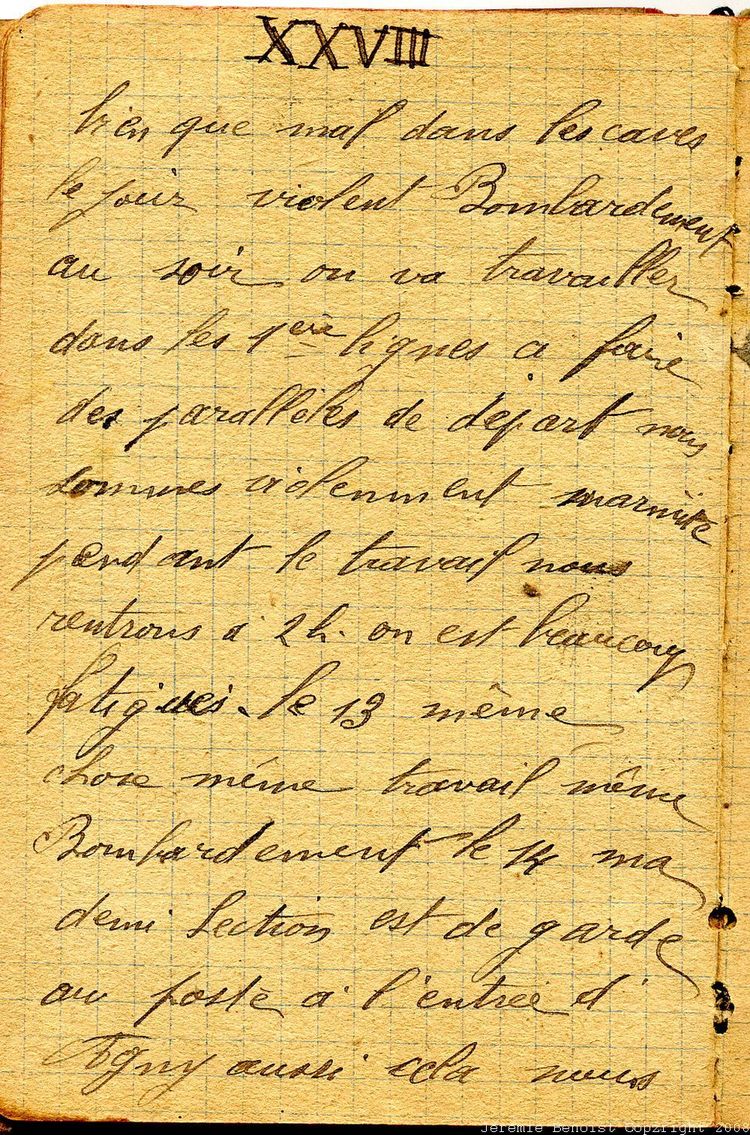 XXVIII
bien que mal dans les caves
le jour violent Bombardement
au soir on va travailler
dans les 1ère lignes a faire
des parallèles de départ nous
sommes violemment marmité
pendant le travail nous
rentrons à 2h. on est beaucoup
fatigués. le 13 même
chose même travail même
Bombardement le 14 ma
demi section est de garde
au poste à l'entrée d'
Agny aussi cela nous
Jeremie Benoist Copyright 2008